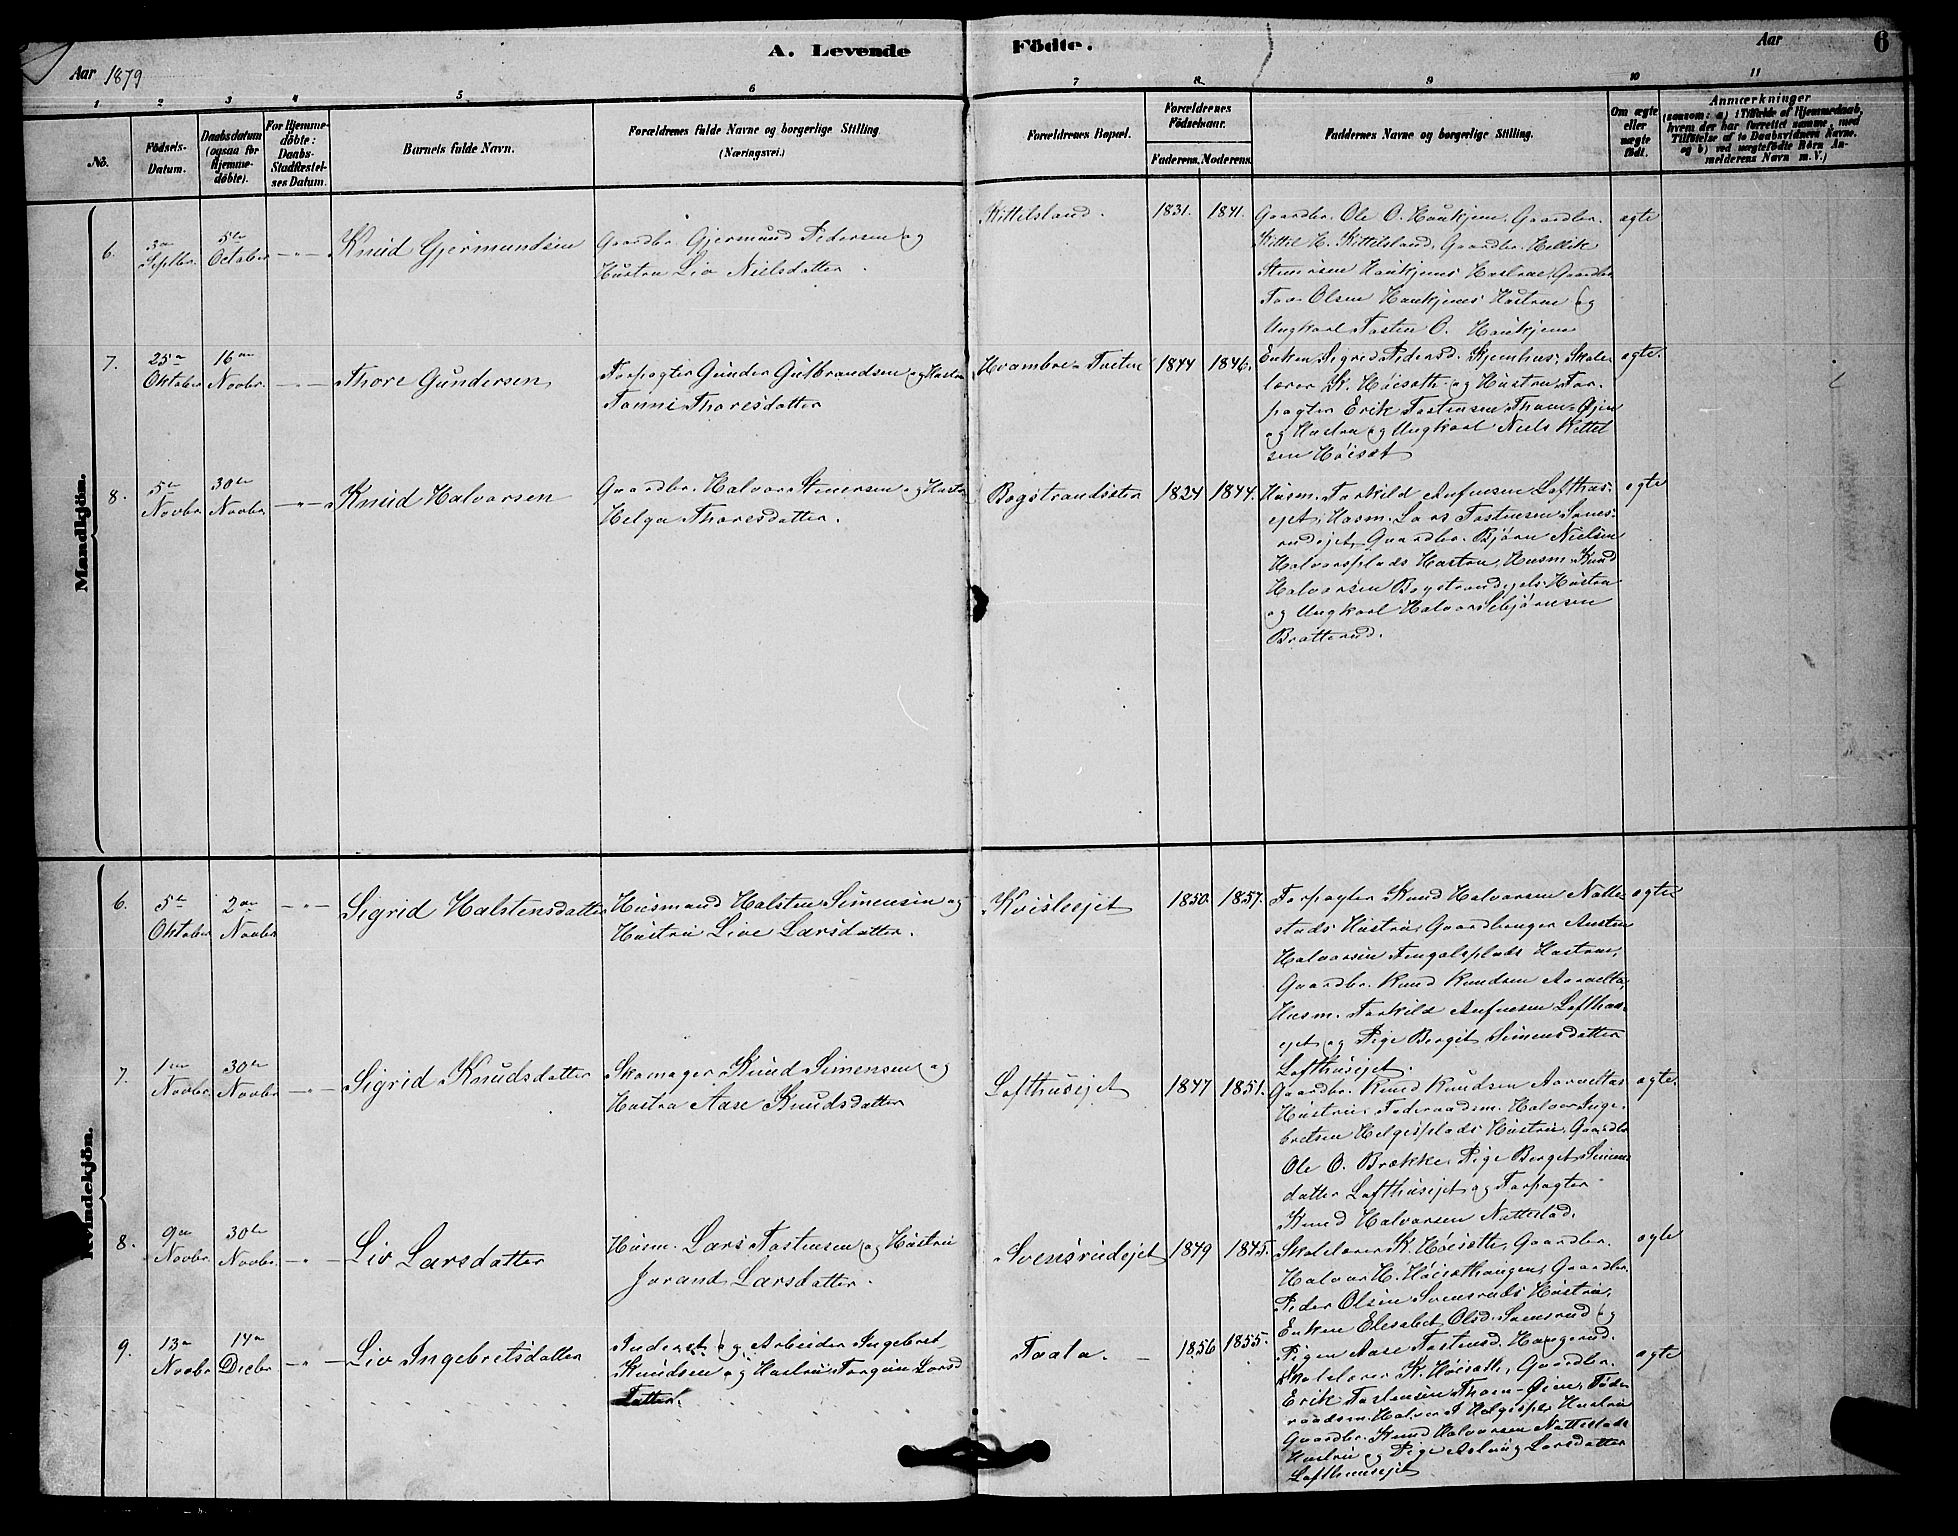 A. Levende Födte.
Aar 1879
Aar
6
1 2 3 4 5 6 7 8 9 10 11
No.
Födsels-Datum.
Daabsdatum (ogsaa for Hjemmedöbte).
For Hjemmedöbte: Daabs-Stadfæstelses Datum.
Barnets fulde Navn.
Forældrenes fulde Navne og borgerlige Stilling
(Næringsvei.)
Forældrenes Bopæl.
Forældrenes Födselsaar.
Faderens. Moderens.
Faddernes Navne og borgerlige Stilling.
Om ægte eller uægte födt.
Anmærkninger
(saasom: a) i Tilfælde af Hjemmedaab, hvem der har forrettet samme, med Tilföielse af to Daabsvidners Navne. og b) ved uægtefödte Börn Anmelderens Navn m. V.)
Mandkjön.
6.
3die Septbr.
5te October
Knud Gjermundsen
Gaardbr. Gjermund Pedersen og
Hustru Liv Nielsdatter.
Kittelsland.
1831. 1841.
Gaardbr. Ole O. Haukjem, Gaardbr.
Kittil H. Kittilsland, Gaardbr. Hellik
Stenersen Haukjems Hustrue, Gaardbr
Tov Olsen Haukjems Hustrue og
Ungkarl Tosten O. Haukjem
ægte
7.
25de Oktober
16de Novbr.
Thore Gundersen
Forpagter Gunder Gulbrandsen og Hustru
Tonni Thoresdatter
Tveten
1844 1846.
Enken Sigrid Pedersd. Skjenhus, Skole
lærer K. Höisæth og Hustru, For-
pagter Erik Tostensen Thom-Öjen
og Hustru og Ungkarl Niels Kittel
sen Höisæt
ægte.
8.
5te Novbr.
30te Novbr.
Knud Halvorsen
Gaardbr. Halvor Stenersen og Hustru
Helga Thoresdatter.
Bogstrandseter
1824 1844.
Husm. Torkild Anfinsen Lofthus-
ejet, Husm. Lars Tostensen Svens-
rudejet, Gaardbr. Björn Nielsen
Halvorsplads Hustru, Husm. Knud
Halvorsen Bogstrandejets Hustru
og Ungkarl Halvor Sebjörnsen
Bratterud.
ægte
Kvindekjön.
6.
5te Oktober
2den Novbr.
Sigrid Halstensdatter
Husmand Halsten Simensen og
Hustru Live Larsdatter.
Kvisleejet
1850. 1857.
Forpagter Knud Halvorsen Natte
stads Hustru, Gaardbruger Amten
Halvorsen Hustrue,
Gaardbr. Knud Knudsen Aarvelta,
Husm. Torkild Anfinsen Lofthus-
ejet og Pige Berget Simensdatter
Lofthusejet.
ægte
7.
1ste Novbr.
30te Novbr.
Sigrid Knudsdatter
Skomager Knud Simensen og
Hustru Aase Knudsdatter
Lofthusejet
1847 1851.
Gaardbr. Knud Knudsen Aarveltas
Hustru, Föderaadsm. Halvor Inge-
bretsen Helgesplads Hustru, Gaardbr
Ole O. Brække, Pige Berget Simens
datter Lofthusejet og Forpagter
Knud Halvorsen Nattestad.
ægte.
8.
9de Novbr.
30te Novbr.
Liv Larsdatter
Husm. Lars Tostensen og Hustru
Jorand Larsdatter.
Svensrudejet
1849 1845.
Skolelærer K. Höisæth, Gaardbr.
Halvor H. Höisæthaugen, Gaardbr.
Peder Olsen Svensruds Hustru,
Enken Elisabet Olsd. Svensrud og
Pigen Aase Tostensd. Haugerud.
ægte
9.
13de Novbr
14de Decbr
Liv Ingebretsdatter
Inderst og Arbeider Ingebret
Knudsen og Hustru Torgun Lars
datter.
Taala.
1856 1855.
Skolelærer K. Höisæth, Gaardbr.
Erik Tostensen Thom-Öien, Föde
raadsm. Halvor I Helgespl. Hustru
Gaardbr. Knud Halvorsen Nattestads
Hustru og Pige Aslaug Larsdatter
Lofthusejet
ægte